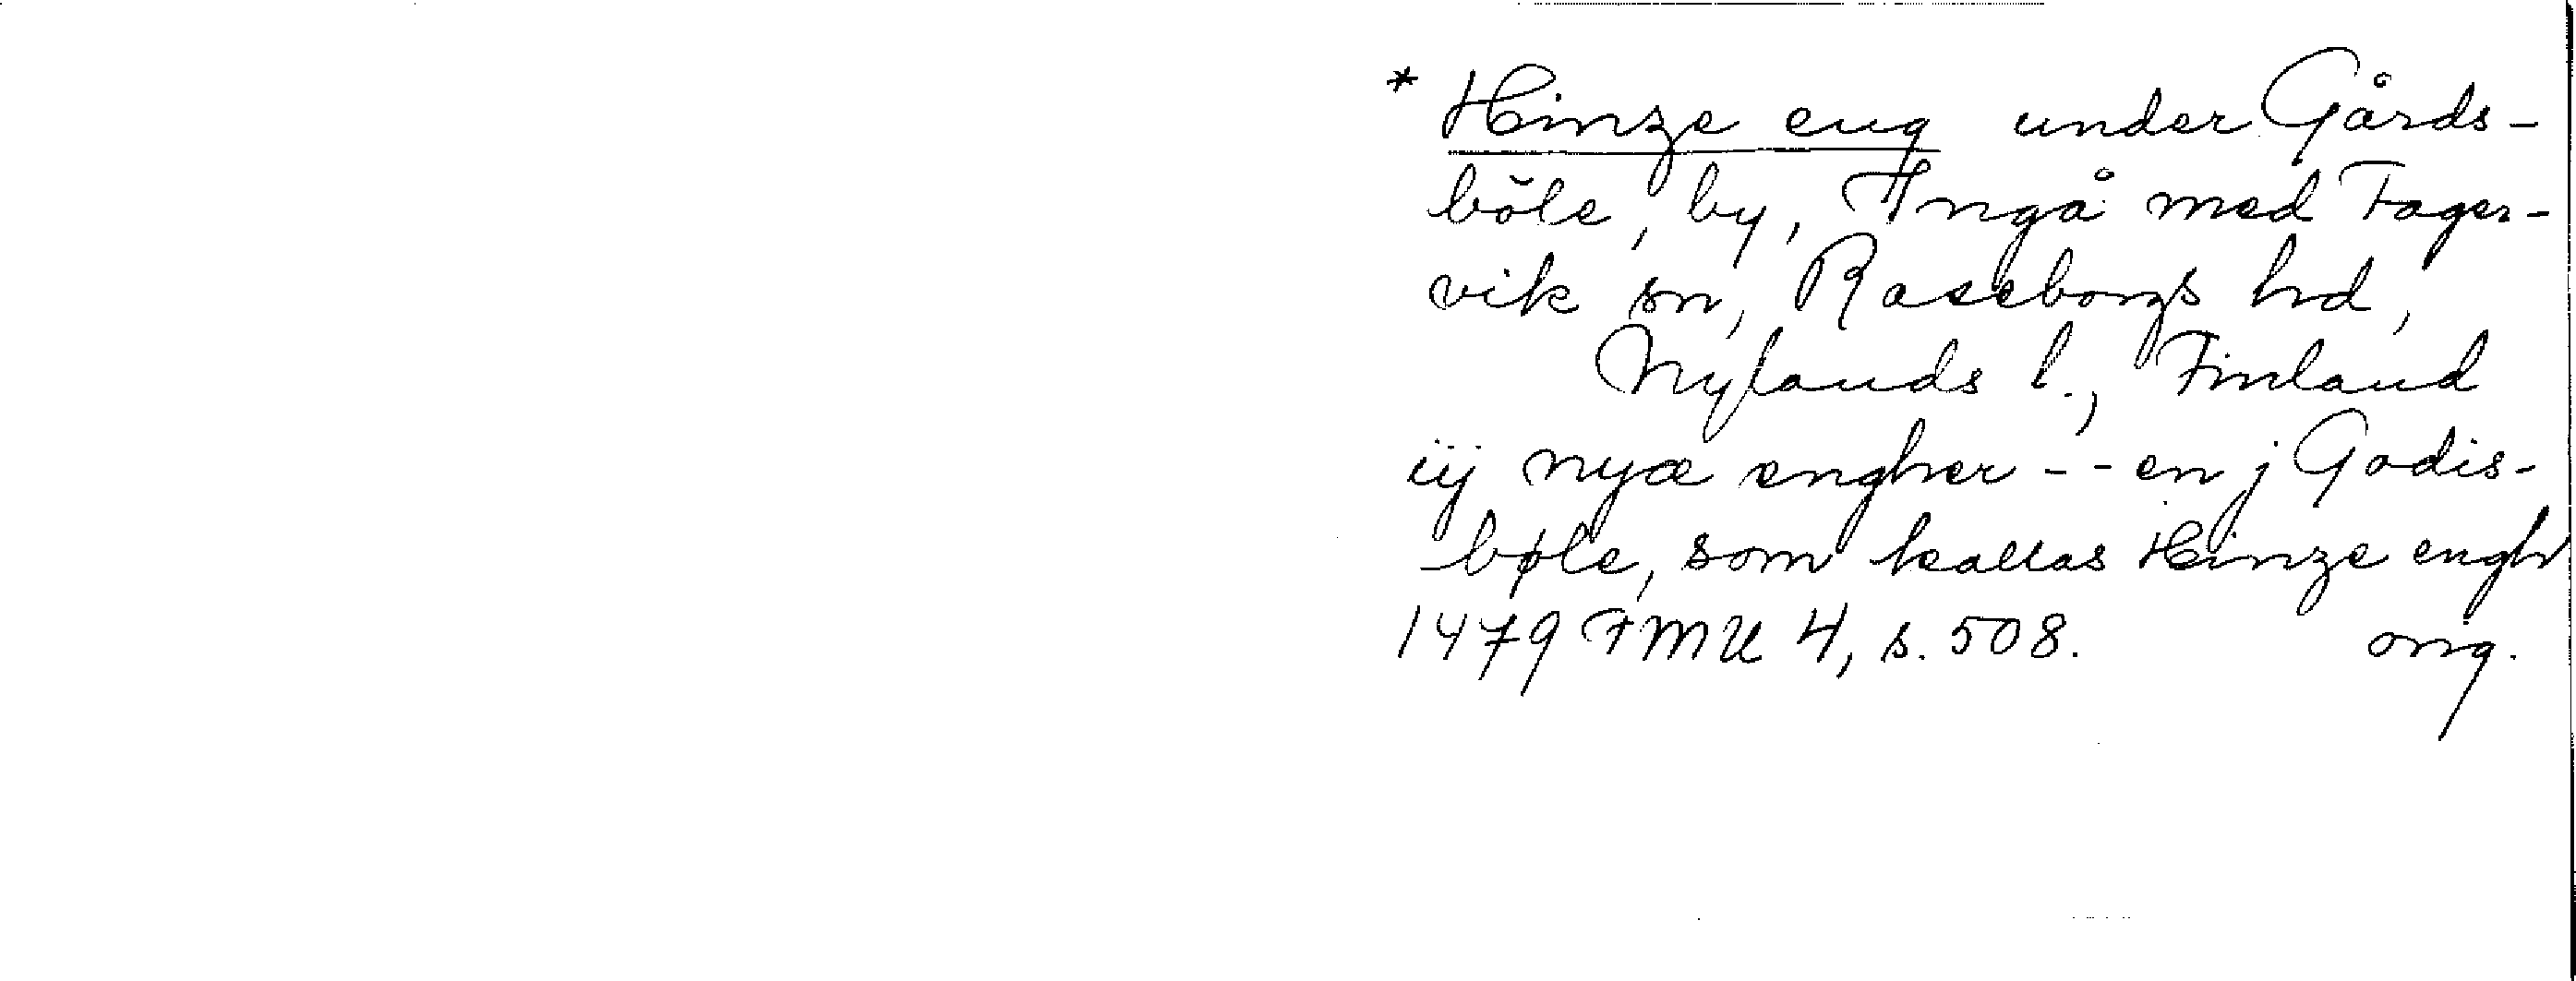 * Hinze eng under Gårds-
böle, by, Ingå med Fager-
vik sn, Raseborgs hd,
Nylands l., Finland
iij nyæ engher -- en j Godis-
bøle, som kallas Hinze engh
1479 FMU 4, s. 508. orig.